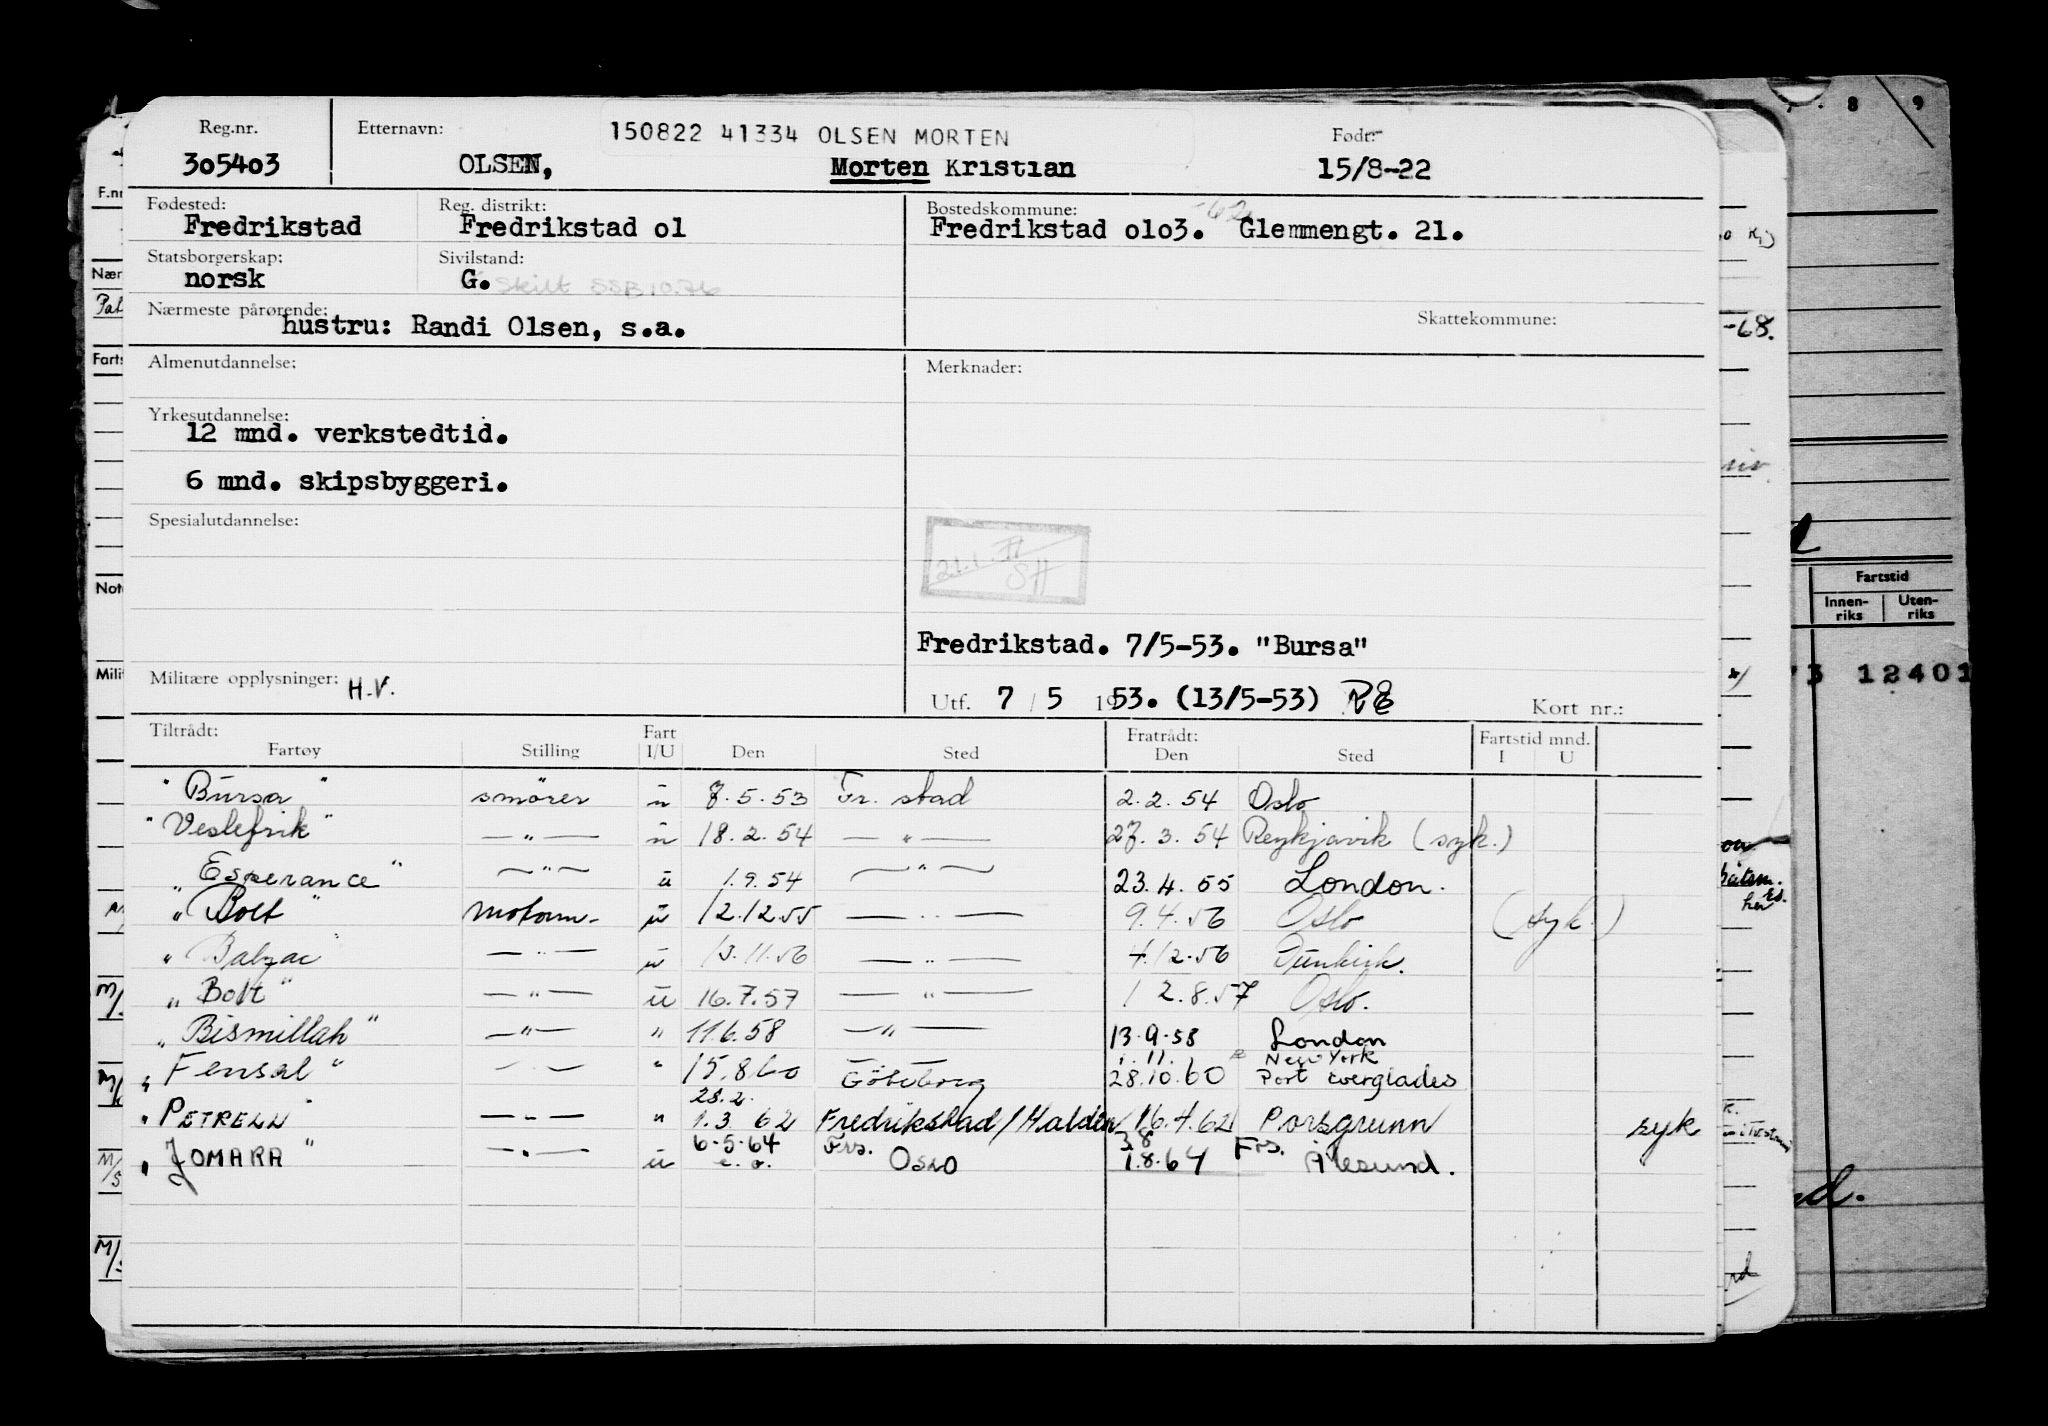 Reg.nr. Etternavn: 150822 41334 OLSEN MORTEN Født:
305403 OLSEN, Morten Kristian 15/8-22
Fødested: Reg. distrikt: Bostedskommune: -62
Fredrikstad Fredrikstad 01 Fredrikstad 0103. Glemmengt. 21.
Statsborgerskap: Sivilstand:
norsk G. Skilt SSB 10.76
Nærmeste pårørende: Skattekommune:
hustru: Randi Olsen, s.a.
Almenutdannelse: Merknader:
Yrkesutdannelse:
12 mnd. verkstedtid.
6 mnd. skipsbyggeri.
Spesialutdannelse:
SH
Fredrikstad. 7/5-53. "Bursa"
Militære opplysninger: H.V.
Utf. 7 / 5 1953. (13/5-53) Kort nr.:
Tiltrådt: Fart Fratrådt: Fartstid mnd.
Fartøy Stilling I/U Den Sted Den Sted I U
"Bursa" smører u 7.5.53 Fr. stad 2.2.54 Oslo
"Veslefrik" — " — u 18.2.54 — " — 27.3.54 Reykjavik (syk.)
"Esperance" — " — u 1.9.54 — " — 23.4.55 London.
"Bolt" motorm- u 12.12.55 — " — 9.4.56 Oslo (syk.)
"Balzac" — " — u 13.11.56 — " — 4.12.56 Dunkirk.
"Bolt" — " — u 16.7.57 — " — 12.8.57 Oslo.
"Bismillah" — " — " 11.6.58 — " — 13.9.58 London
1.11. New York
"Fensal" — " — " 15.8.60 Göteborg 28.10.60 Port Everglades
28.2.
"PETRELL" — " — " 1.3 62 Fredrikstad/Halden 16.4.62 Porsgrunn syk
6-5-64 Frs. 3.8 Frs.
"JOMARA" — " — u e.o. Oslo 1.8.64 Ålesund.
F.nr
Nær
Farts
Note
Milit
-68.
8 9
Fartstid
Innen- Uten-
riks riks
73 12401